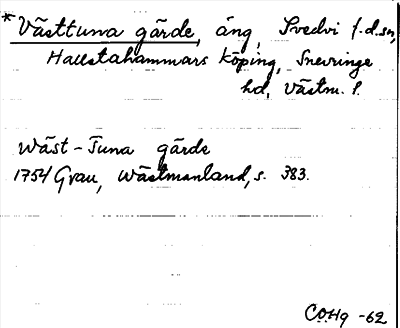 * Västtuna gärde, äng, Svedvi f.d. sn,
Hallstahammars köping, Snevringe
hd, Västm. l.
Wäst-Tuna gärde
1754 Grau, Wästmanland, s. 383.
C.O.Hg -62